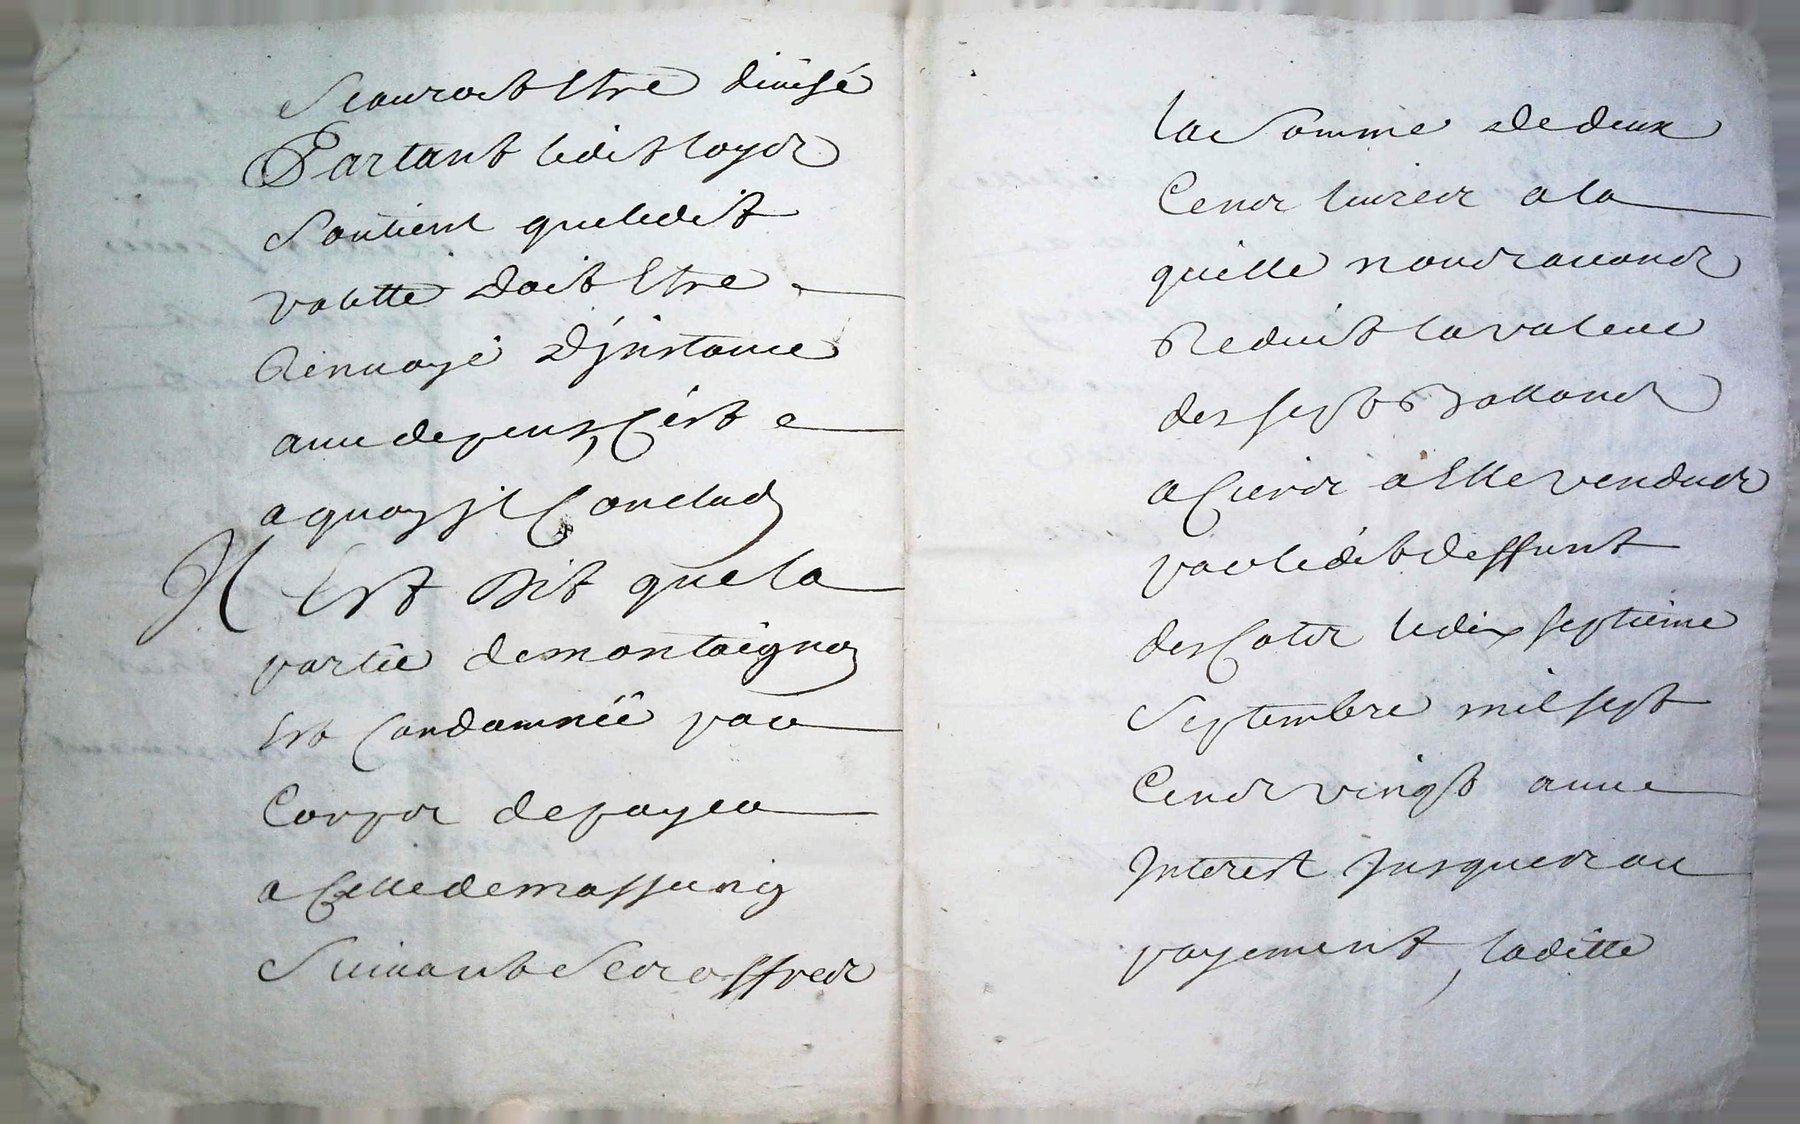 Scauroit Estre divisé
Partant ledit loyer
Soutient queledit
valette Doit Estre
Renuoyé D'jnstance
auec depens, C'est
a quoy jl Conclud
Il Est Dit quela
partie demontaignay
Est Condamnée par
Corps depayer
a Celle demassurig
Suiuant Ses offres
la Somme Dedeux
Cens liures a la
quelle nous auons
Reduit lavaleur
des sept Ballons
aciers a Elle vendus
parledit deffunt
des Cotes ledix septieme
Septembre mil sept
Cens vingt auec
Jnterest Jusques au
payement, laditte